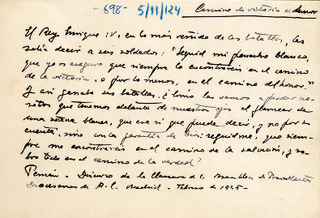 -698- 5/11/124
Camino de victoria y honor
El Rey Enrique IV, en lo más reñido de las batallas, les
solía decir a sus soldados: "Seguid mi penacho blanco,
que yo os aseguro que siempre lo encontraréis en el camino
de la victoria, o por lo menos, en el camino del honor."
Y así ganaba sus batallas. ¿
que tenemos delante de nuestros ojos al
una blanca, que esa sí que puede decir, y no por
cuenta, sino con la garantía de Dios: seguidme, que siem-
pre me encontraréis en el camino de la salvación, y so-
bre todo en el camino de la verdad?
Discurso de la Clausura de la Asamblea de
Diocesanos de A.C. Madrid - Febrero de 1945-